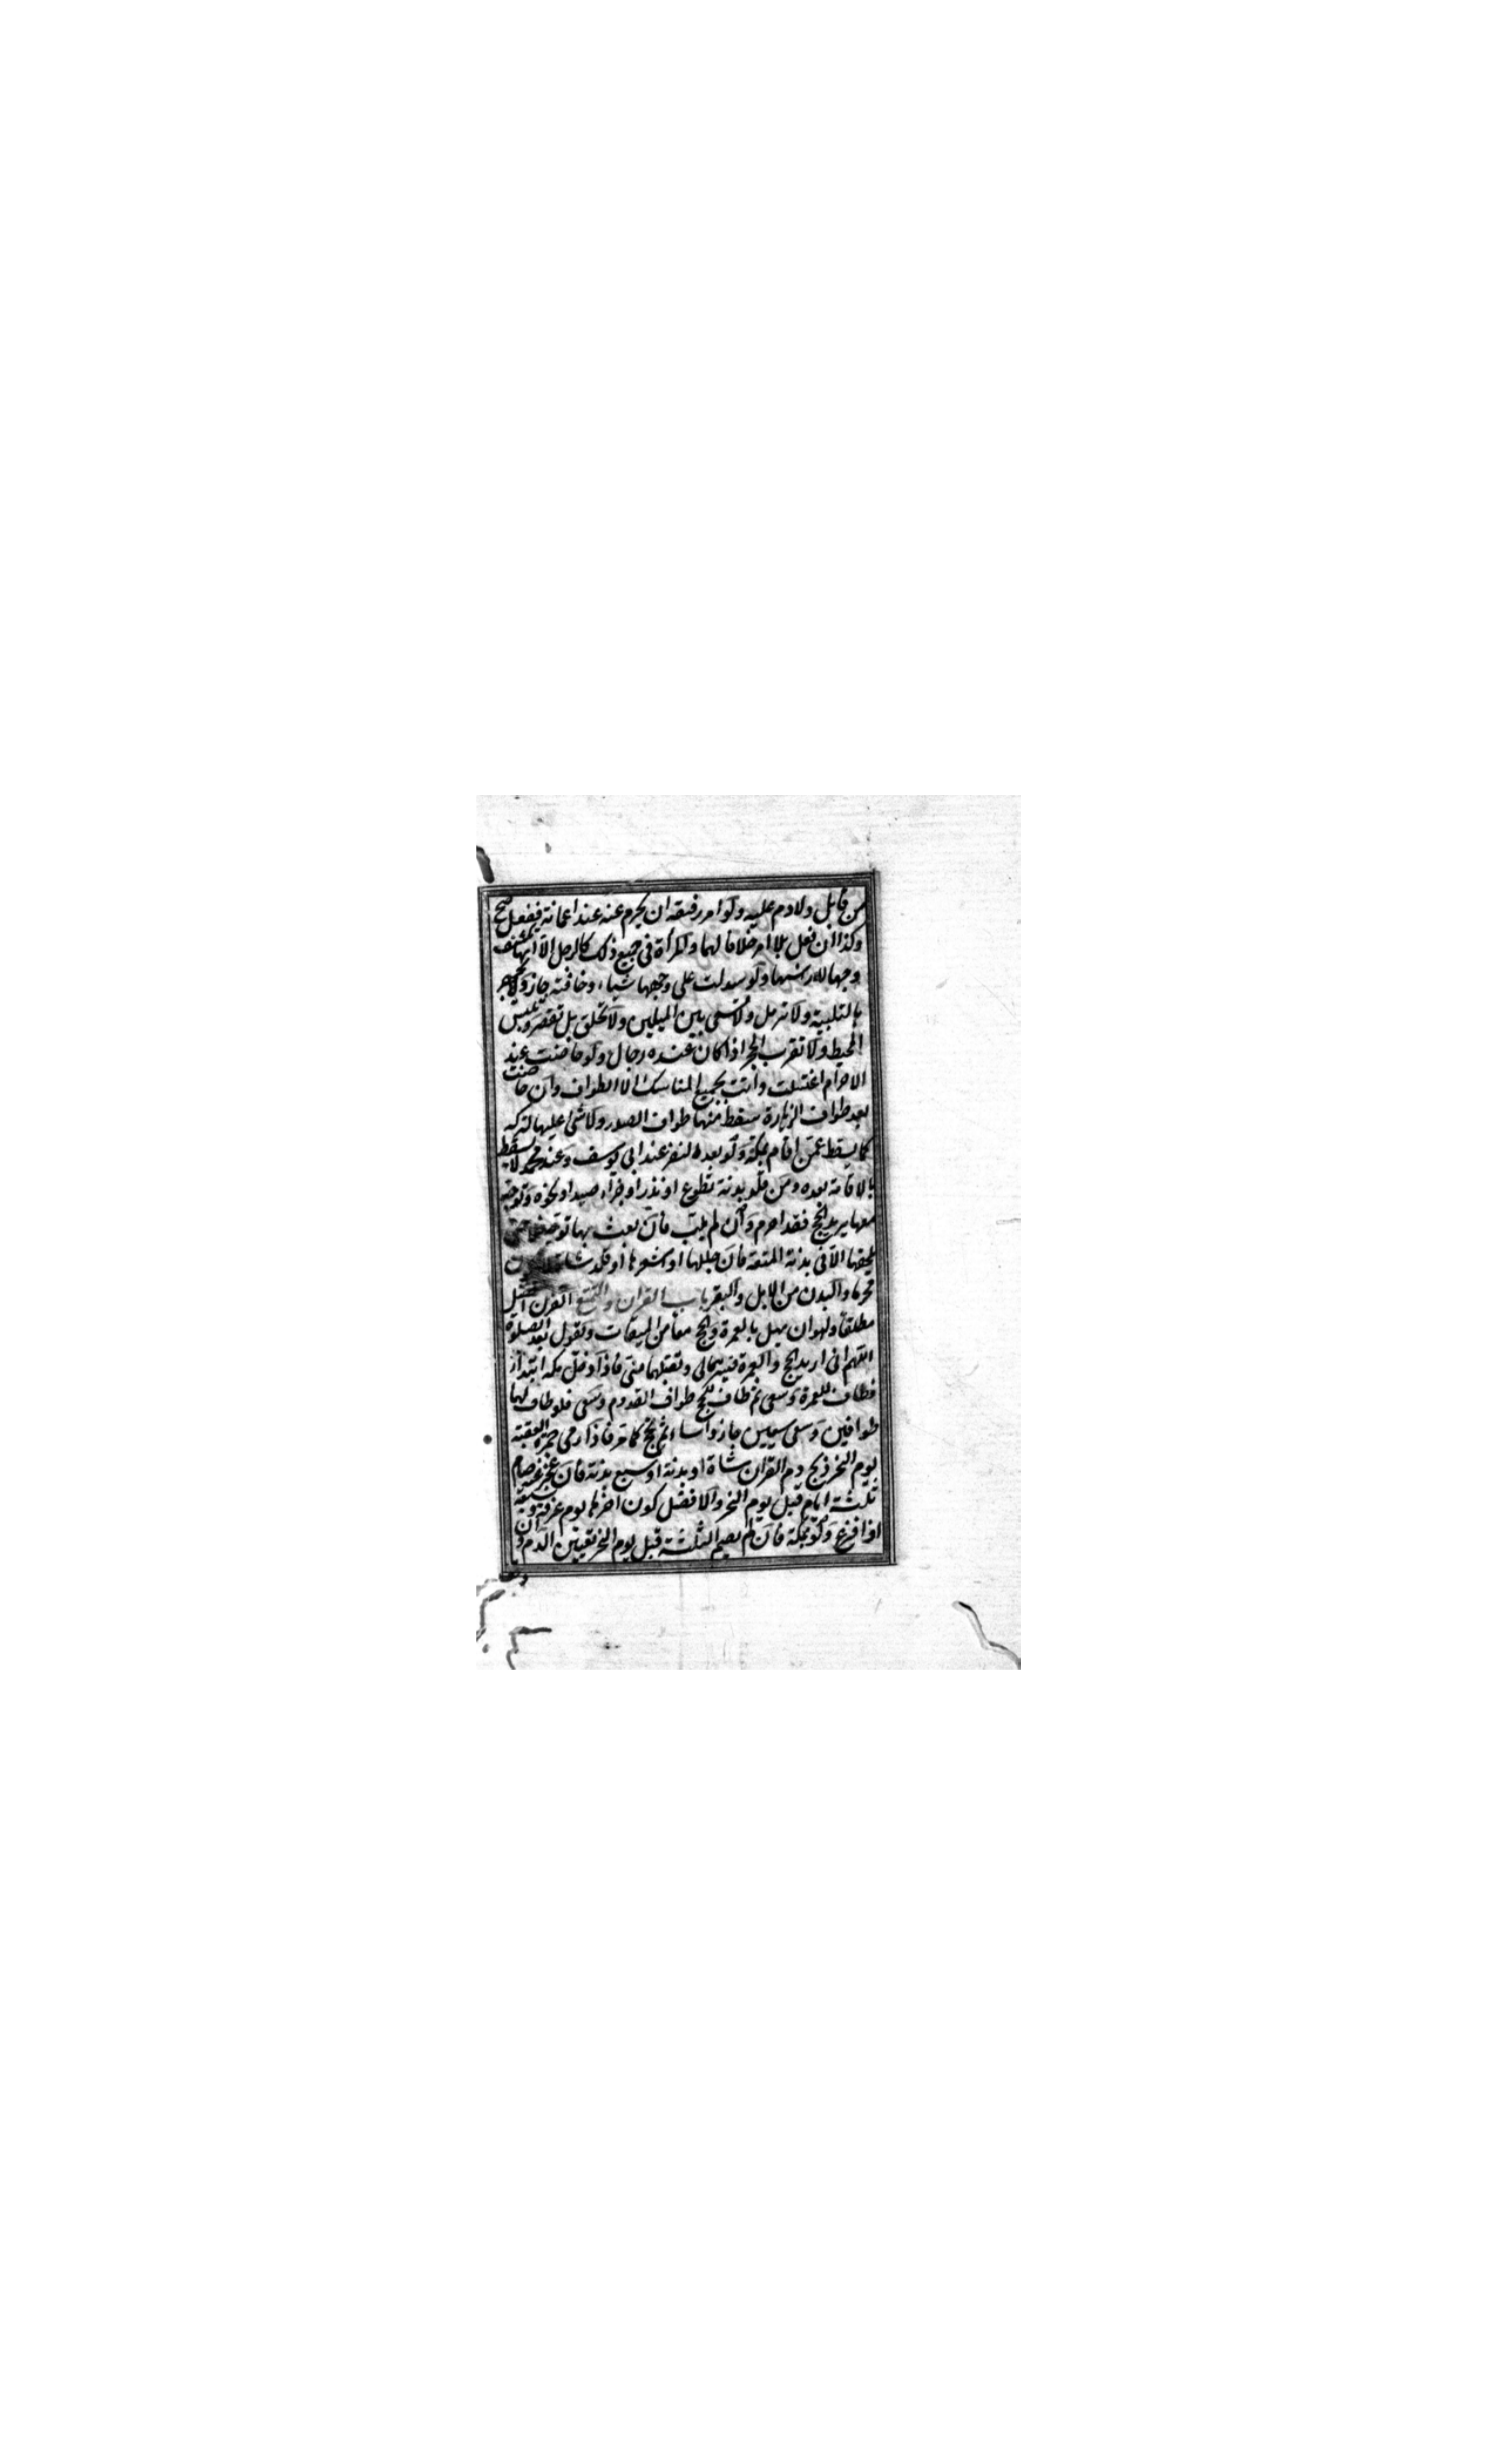 من قابل ولا دم عليه ولو امر رفيقه ان يحرم عنه عند اغمائه ففعل صح
وكذا ان فعل بلا امر خلافا لهما والمرأة فى جميع ذلك كالرجل الا انها تكشف
وجهها لا رأسها ولو سدلت على وجهها شيئا وجافته جاز ولا تجهر
بالتلبية ولا ترمل ولا تسعى بين الميلين ولا تحلق بل تقصر وتلبس
المخيط ولا تقرب الحجر اذا كان عنده رجال ولو حاضت عند
الاحرام اغتسلت واتت بجميع المناسك الا الطواف وان حاضت
بعد طواف الزيارة سقط عنها طواف الصدر ولا شئ عليها لتركه
كما يسقط عمن اقام بمكة ولو بعد النفر عند ابى يوسف وعند محمد لا يسقط
بالاقامة بعده ومن قلد بدنة تطوع او نذر او جزاء صيد او نحوه وتوجه
معها يريد الحج فقد احرم وان لم يلب فان بعث بها ثم توجه حتى
يلحقها الا فى بدنة المتعة فان جللها او اشعرها او قلد شاة لا يكون
محرما والبدن من الابل والبقر باب القران والتمتع القران افضل
مطلقا وهو ان يهل بالعمرة والحج معا من الميقات ويقول بعد الصلوة
اللهم انى اريد الحج والعمرة فيسرهما لى وتقبلهما منى فاذا دخل مكة ابتدأ
فطاف للعمرة وسعى ثم طاف للحج طواف القدوم وسعى فلو طاف لهما
طوافين وسعى سعيين جاز واساء ثم يحج كما مر فاذا رمى جمرة العقبة
يوم النحر ذبح دم القران شاة او بدنة او سبع بدنة فان عجز عنه صام
ثلثة ايام قبل يوم النحر والافضل كون اخرها يوم عرفة وسبعة
اذا فرغ ولو بمكة فان لم يصم الثلثة قبل يوم النحر تعين الدم وان